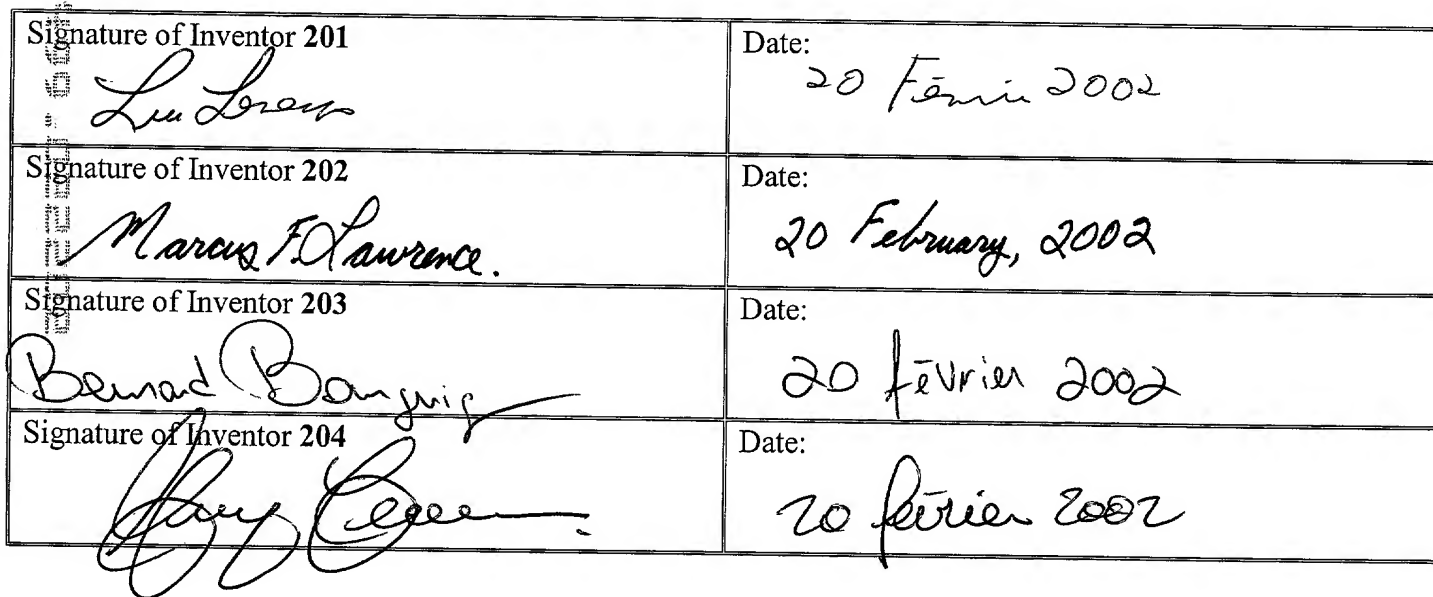 Signature of Inventor 201
Date:
20 2002
Signature of Inventor 202
Date:
Marcus F. Lawrence.
20 February, 2002
Signature of Inventor 203
Date:
Bernard
20 février 2002
Signature of Inventor 204
Date:
20 février 2002